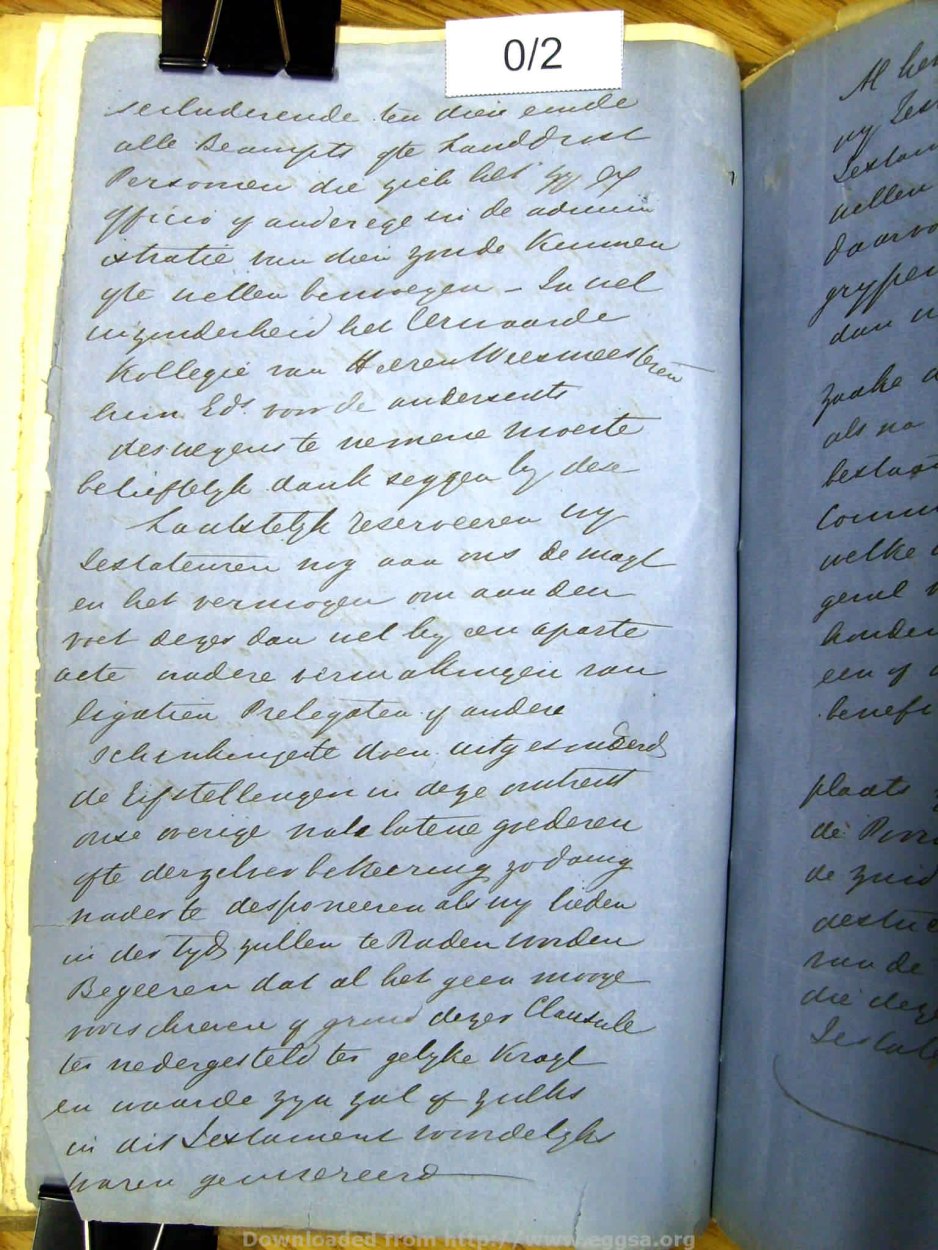 0/2
secluderende ten dien einde
alle Beampts ofte Landdrost
Personen die zich het zy Ex
officio of anderege in de admin
istratie van dien zoude kunnen
ofte willen bemoeyen - In wel
inzonderheid het Eerwaarde
Kollegie van Heeren Weesmeesteren
hun Eds voor de
deswegens te nemene moeite
belieftelyk dank seggen by dese
Laatstelyk reserveeren wy
Testateuren nog aan ons de magt
en het vermogen om aan den
voet dezes dan wel by een aparte
acte nadere vermakingen van
ligatien Prelegaten of andere
schenkingen te doen uitgesonderd
de in deze omtrent
onze overige nale latene goederen
ofte derzelver bekeering zodanig
nader te desponeeren als wy lieden
in der tyd zullen te Raden worden
Begeeren dat al het geen mooge
voorschreven of grond dezer Clausule
ter nedergesteld ter gelyke Kragt
en waarde zyn zal of zulks
in dit Testament woordelyks
waren geinsereerd
Al het
wy Tes
Testam
willen
daarvo
grypen
dan
zaake
als na
bestaa
Comm
welke
geval
houden
een of
benefi
plaats
de Provi
de zuid
van de
die deze
Testat
Downloaded from http://www.eggsa.org